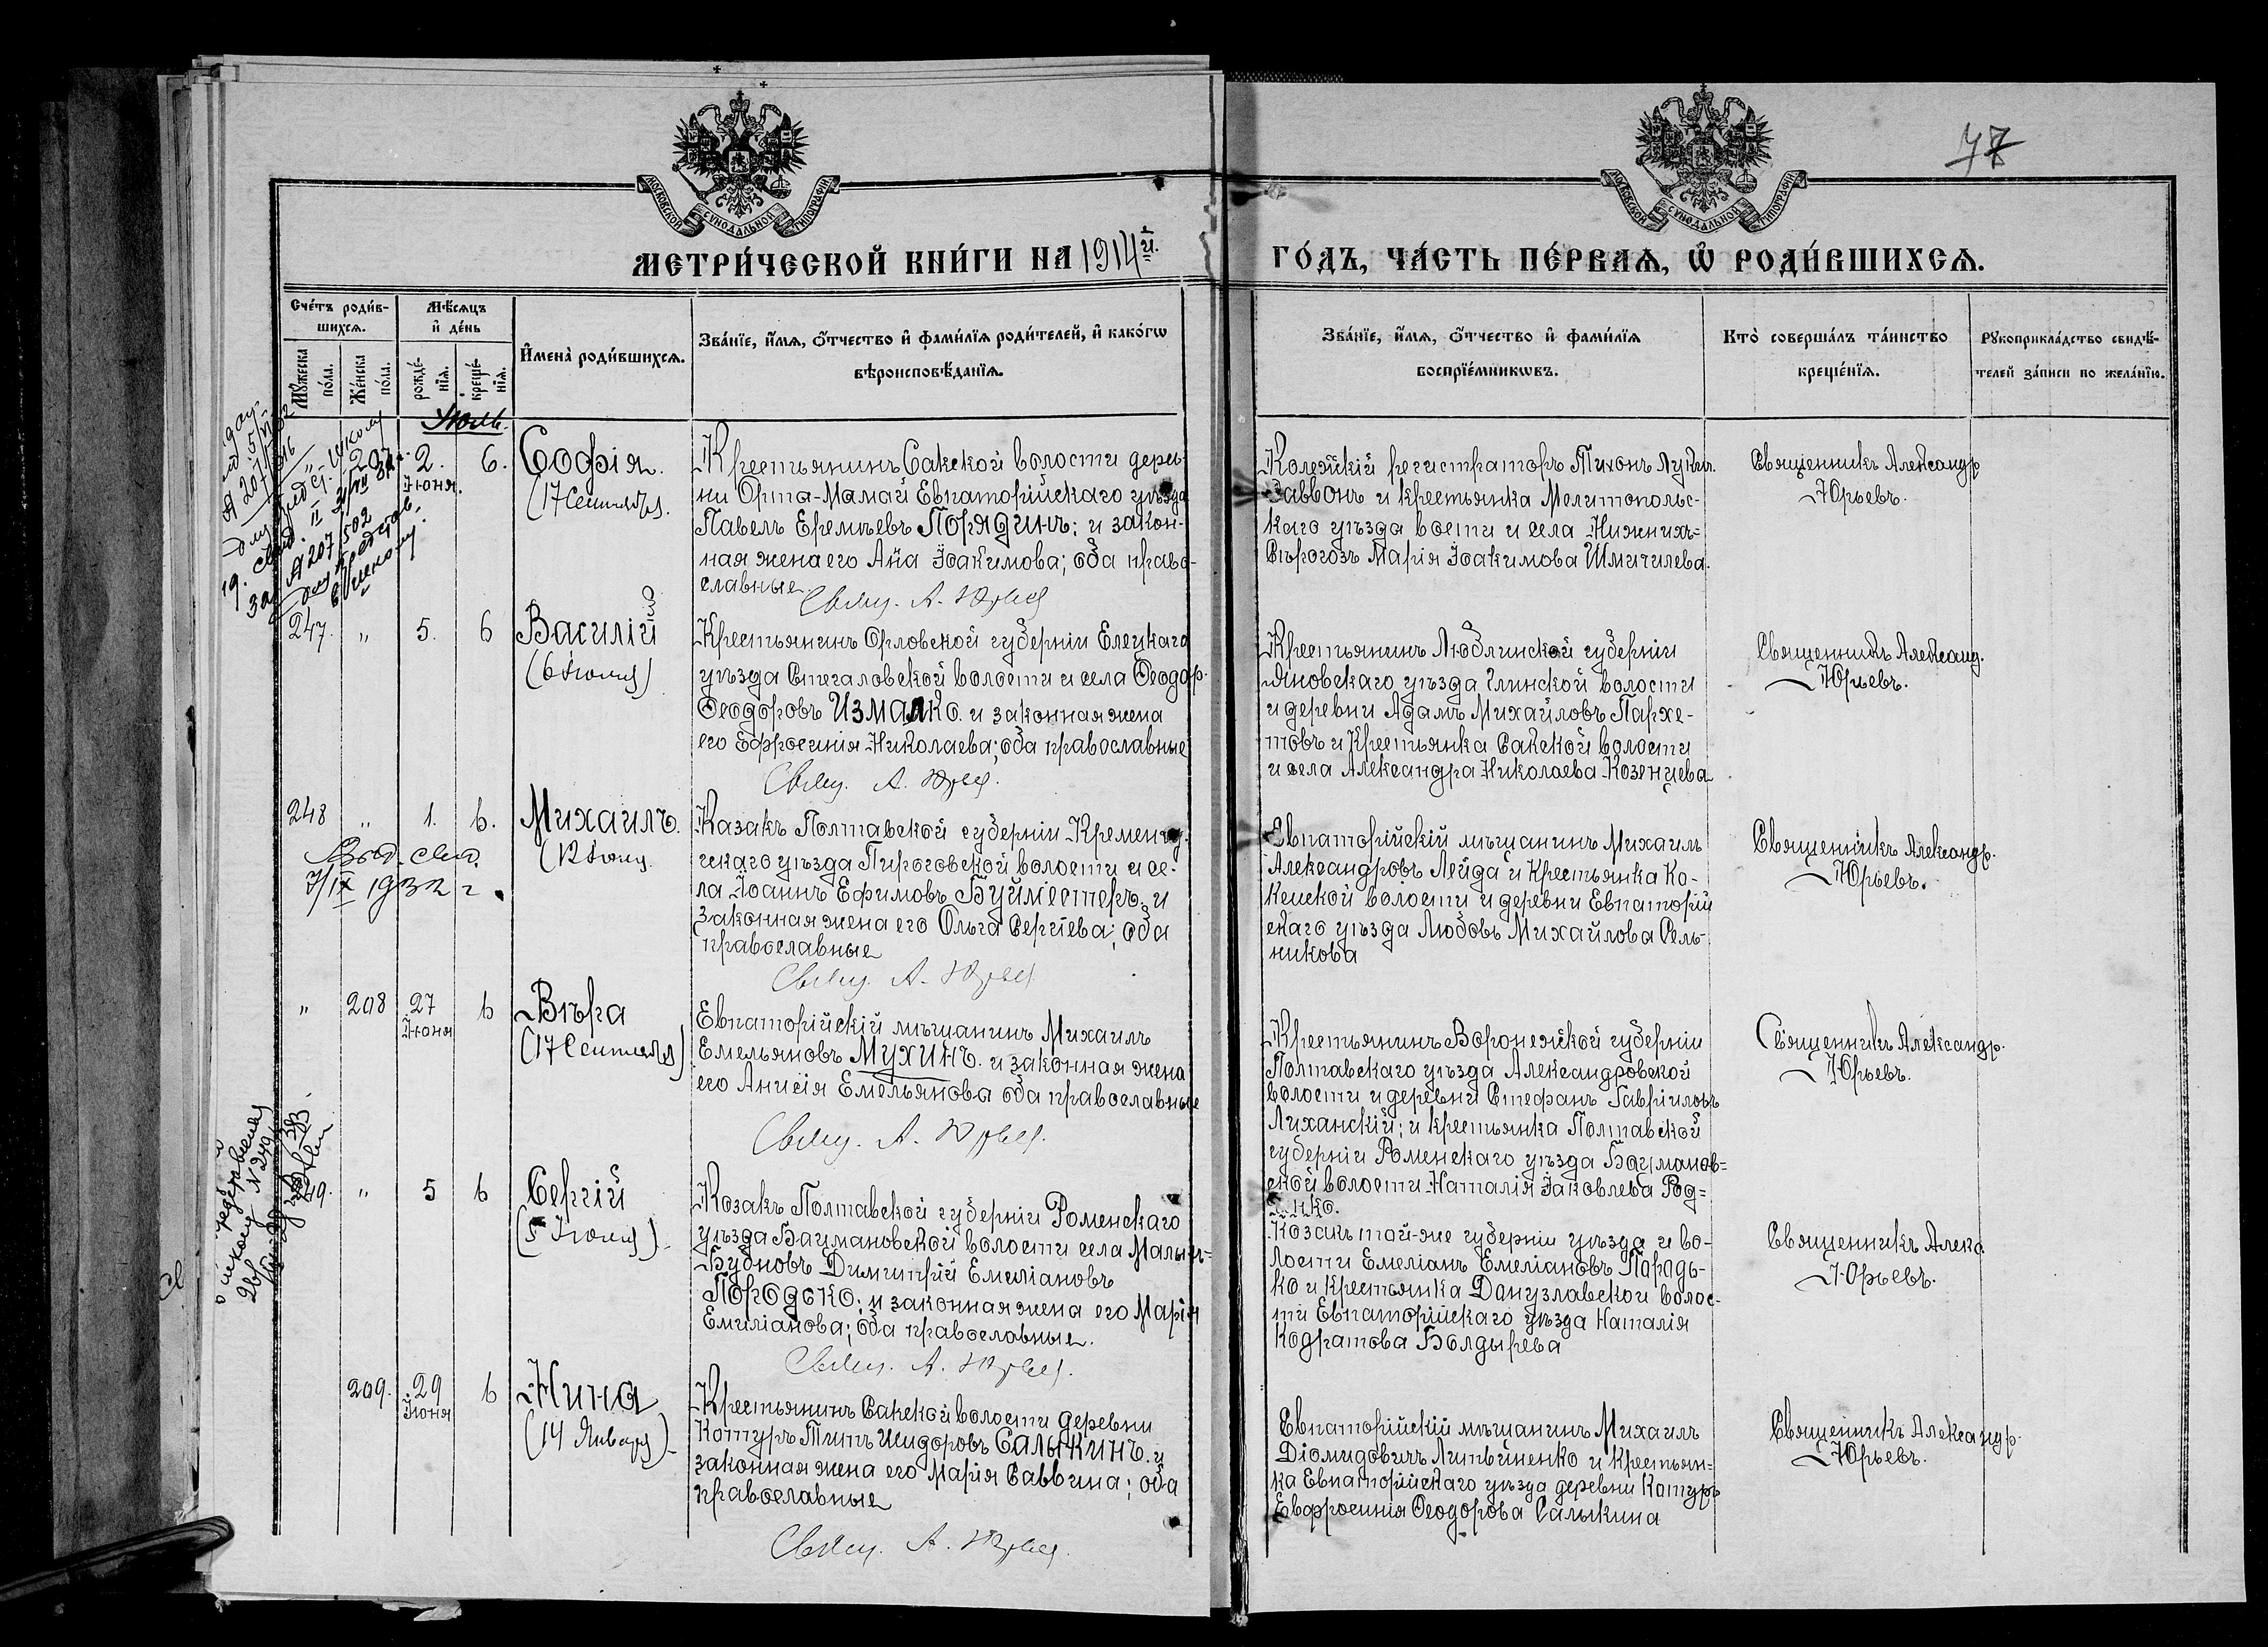 МОСКОВСКОЙ СУНОДАЛЬНОЙ ТИПОГРАФІИ
МОСКОВСКОЙ СУНОДАЛЬНОЙ ТИПОГРАФІИ
МЕТРИ́ЧЕСКОЙ КНИ́ГИ НА 1914й.
ГО́ДЪ, ЧА́СТЬ ПЕ́РВАѦ, Ѡ҆ РОДИ́ВШИХСѦ.
Сче́тъ роди́в-
шихсѧ.
Мꙋ́жеска
по́ла.
Же́нска
по́ла.
Мѣ́сѧцъ
и҆ де́нь
рожде́-
нїѧ.
креще́-
нїѧ.
И҆мена̀ роди́вшихсѧ.
Зва́нїе, и҆́мѧ, ѻ҆́тчество и҆ фами́лїѧ роди́телей, и҆ како́гѡ
вѣроисповѣ́данїѧ.
Зва́нїе, и҆́мѧ, ѻ҆́тчество и҆ фами́лїѧ
воспрїе́мникѡвъ.
Кто̀ соверша́лъ та́инство
креще́нїѧ.
Рꙋкоприкла́дство свидѣ́-
телей за́писи по жела́нїю.
Июль.
" 207. 2.
Июня.
6.
Софія.
(17 Сентября).
Крестьянинъ Сакской волости дерев-
ни Орта-Мамай Евпаторійскаго уѣзда
Павелъ Еремѣевъ Порядинъ; и закон-
ная жена его Анна Іоакимова; оба право-
славные.
Свящ. А. Юрьев
Колежскій регистраторъ Тихонъ Лукич.
Саввонъ и крестьянка Мелитопольс-
каго уѣзда вости и села Нижнихъ-
Сѣрогозъ Марія Іоакимова Шмигилева.
Священникъ Александр
Юрьевъ.
247. " 5. 6
Василій
(6 Июня)
Крестьянинъ Орловской губерніи Елецкаго
уѣзда Стегаловской волости и села Ѳеодор.
Ѳеодоровъ Измалко. и законная жена
его Ефросинія Николаева; оба православные
Свящ. А. Юрьев.
Крестьянинъ Люблинской губерніи
Яновскаго уѣзда Глинской волости
и деревни Адамъ Михайловъ Пархе-
товъ и Крестьянка Сакской волости
и села Александра Николаева Козенцева
Священникъ Александ.
Юрьевъ.
248 " 1. 6.
Выд. свид.
7/IX 1932 г.
Михаилъ.
(12 Июля
Казакъ Полтавской губерніи Кременчу-
гскаго уѣзда Пироговской волости и се-
ла Іоаннъ Ефимовъ Буймістеръ. и
законная жена его Ольга Сергіева; оба
православные
Свящ. А. Юрьев
Евпаторійскій мѣщанинъ Михаилъ
Александровъ Лейда и Крестьянка Ко-
кенской волости и деревни Евпаторій
скаго уѣзда Любовь Михайлова Сель-
никова
Священникъ Александр.
Юрьевъ.
" 208 27
Июня
6
Вѣра
(17 Сентября)
Евпаторійскій мѣщанинъ Михаилъ
Емельяновъ Мухинъ. и законная жена
его Анисія Емельянова оба православные
Свящ. А. Юрьев.
Крестьянинъ Воронежской губерніи
Полтавскаго уѣзда Александровской
волости и деревни Стефанъ Гавриловъ
Лиханскій; и крестьянка Полтавской
губерніи Роменскаго уѣзда Бацманов=
ской волости Наталія Іаковлева Род=
Священникъ Александр.
Юрьевъ.
249. " 5 6
Сергій
(5 Июля).
Козакъ Полтавской губерніи Роменскаго
уѣзда Бацмановской волости села Малыхъ-
Бубновъ Димитрій Емеліановъ
Породько; и законная жена его Марія
Емиліанова; оба православные.
Свящ. А. Юрьев.
Козакъ той-же губерніи уѣзда и во-
лости Емеліанъ Емеліановъ Парадь-
ко и крестьянка Данузлавской волос-
ти Евпаторійскаго уѣзда Наталія
Кодратова Болдырева
Священникъ Алекс.
Юрьевъ.
209. 29
Июня
6
Нина
(14 Января)
Крестьянинъ Сакской волости деревни
Контуръ Титъ Исидоровъ Салыкинъ. и
законная жена его Марія Саввина; оба
православные
Свящ. А. Юрьев.
Евпаторійскій мѣщанинъ Михаилъ
Діомидовичъ Литвиненко и Крестьян-
ка Евпаторійскаго уѣзда деревни Контуръ
Евфросинія Ѳеодорова Салыкина
Священникъ Александр.
Юрьевъ.